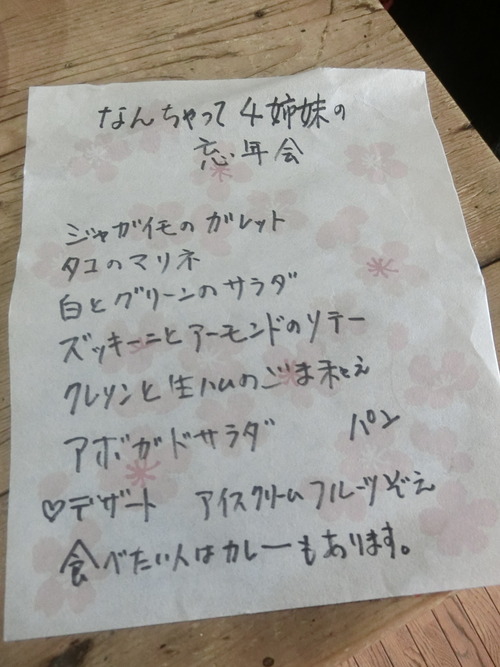 なんちゃって4姉妹の
忘年会
ジャガイモのガレット
タコのマリネ
白とグリーンのサラダ
ズッキーニとアーモンドのソテー
クレソンと生ハムのごま和え
アボガドサラダ　パン
♡デザート　アイスクリームフルーツぞえ
食べたい人はカレーもあります。